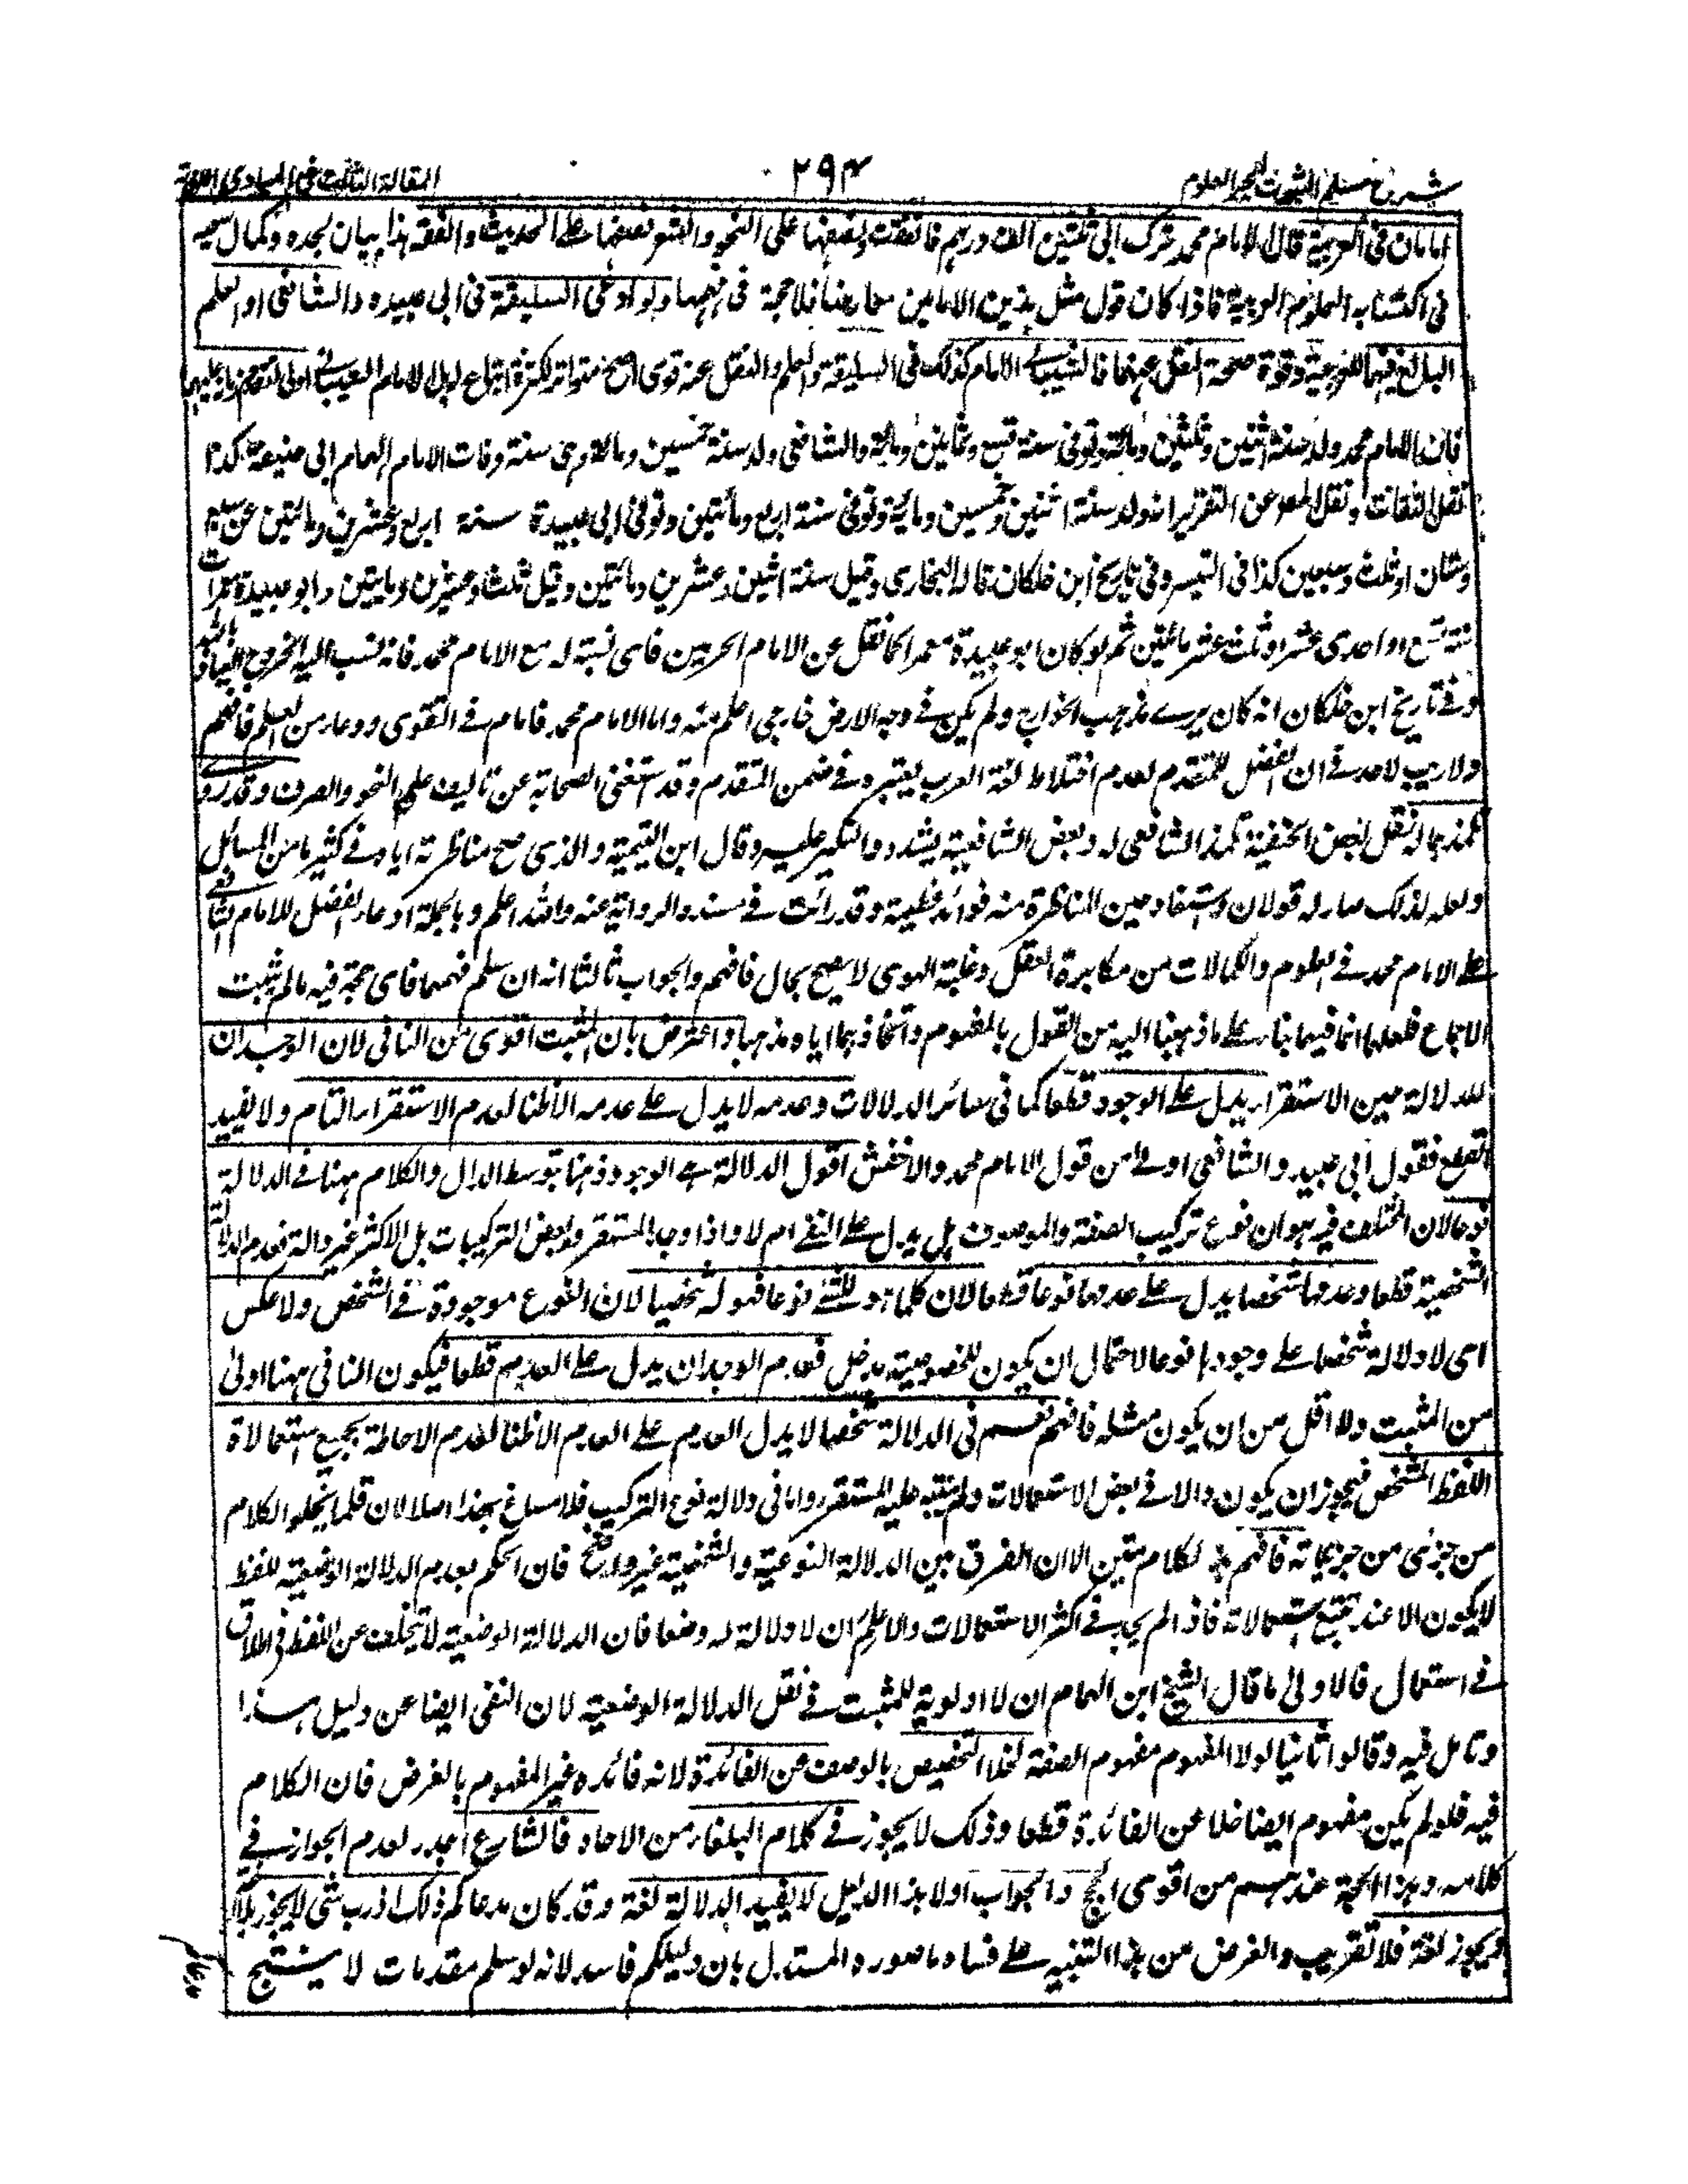 شرح مسلم الثبوت لبحر العلوم
٢٩٣
المقالة الثالثة في المبادي اللغوية
امامان فى العربية قال الامام محمد ترك ابى ثلثين الف درهم فانفقت نصفها على النحو والشعر ونصفها على الحديث والفقه هذا بيان لجده وكمال سعيه
فى اكتسابه العلوم العربية فاذا كان قول مثل هذين الامامين معارضا فلا حجة فى فهمها ولو ادعى السليقة فى ابى عبيده والشافعى او العلم
البالغ فيهما اللغوية وقوة صحة النقل عنهما فالشيبانى الامام كذلك فى السليقة والعلم والنقل عنه قوى اصح متواتر لكثرة اتباع له بل الامام الشيبانى اولى لتقدم زمانه عليهما
فان الامام محمد ولد سنة اثنين وثلثين ومائة وتوفى سنة تسع وثمانين ومائة والشافعى ولد سنة خمسين ومائة وهى سنة وفات الامام الهمام ابى حنيفة كذا
نقل الثقات ونقل المصر عن التقرير انه ولد سنة اثنين وخمسين ومائة وتوفى سنة اربع ومائتين وتوفى ابى عبيدة سنة اربع وعشرين ومائتين عن سبع
وستان او ثلث وسبعين كذا فى التيسير وفى تاريخ ابن خلكان قاله البخارى وقيل سنة اثنين وعشرين ومائتين وقيل ثلث وعشرين ومايتين وابو عبيدة مات
سنة تسع او احدى عشر او ثلث عشر مائتين ثم لو كان ابو عبيدة معمرا كما نقل عن الامام الحرمين فاى نسبة له مع الامام محمد فانه نسب اليه الخروج
وفى تاريخ ابن خلكان انه كان يرى مذهب الخوارج ولم يكن فى وجه الارض خارجى اعلم منه واما الامام محمد فامام فى التقوى ووعاء من العلم فافهم
ولا ريب لاحد فى ان الفضل للمتقدم لعدم اختلاط لغة العرب بغيره فى ضمن المتقدم وقد استغنى الصحابة عن تاليف علمى النحو والصرف وقد روى
تلمذهما ونقل بعض الحنفية تلمذ الشافعى له وبعض الشافعية يشددوا النكير عليه وقال ابن التيمية والذى صح مناظرته اياه فى كثير ما من المسائل
ولعله لذلك صار له قولان واستفاد حين المناظرة منه فوائد عظيمة وقد رائت فى مسنده الرواية عنه والله اعلم وبالجملة ادعاء الفضل للامام الشافعى
على الامام محمد فى العلوم والكمالات من مكابرة العقل وغلبة الهوى لا يصح بحال فافهم والجواب ثالثا انه ان سلم فهمهما فاى حجة فيه مالم يثبت
الاجماع فلعلهما انما فهما بناء على ما ذهبا اليه من القول بالمفهوم واتخاذهما اياه مذهبا واعترض بان المثبت اقوى من النافى لان الوجدان
للدلالة حين الاستقراء يدل على الوجود قطعا كما فى سائر الدلالات وعدمه لا يدل على عدمه الا ظنا لعدم الاستقراء التام ولا يفيد
القطع فقول ابى عبيد والشافعى اولى من قول الامام محمد والاخفش اقول الدلالة هى الوجود ذهنا بتوسط الدال والكلام ههنا فى الدلالة
نوعا لان المختلف فيه هو ان نوع تركيب الصفة والموصوف هل يدل على النفى ام لا واذا وجد المستقر وبعض التركيبات بل الاكثر غير دالة فعدم الدلالة
الشخصية قطعا وعدمها شخصا يدل على عدمها نوعا قطعا لان كلما هو للشئ نوعا فهو له شخصيا لان النوع موجودة فى الشخص ولا عكس
اى لا دلالة شخصا على وجودها نوعا لاحتمال ان يكون للخصوصية مدخل فعدم الوجدان يدل على العدم قطعا فيكون النافى ههنا اولى
من المثبت ولا اقل من ان يكون مثله فافهم نعم فى الدلالة شخصا لا يدل العدم على العدم الا ظنا لعدم الاحاطة بجميع استعمالاة
اللفظ الشخص فيجوز ان يكون دالا فى بعض الاستعمالات ولم يتنبه عليه المستقر واما فى دلالة نوع التركيب فلا مساغ بهذا اصلا لان قلما يخلو الكلام
من جزئى من جزئياته فافهم هذا الكلام متين الا ان الفرق بين الدلالة النوعية والشخصية غير واضح فان الحكم بعدم الدلالة الوضعية للفظ
لا يكون الا عند تتبع استعمالاته فاذا لم يجب فى اكثر الاستعمالات دالا علم ان لا دلالة له وضعا فان الدلالة الوضعية لا تتخلف عن اللفظ فى اطلاق
فى استعمال فالاولى ما قال الشيخ ابن الهمام ان لا اولوية للمثبت فى نقل الدلالة الوضعية لان النفى ايضا عن دليل هذا
وتامل فيه وقالوا ثانيا لولا المفهوم مفهوم الصفة لخلا التخصيص بالوصف عن الفائدة لانه فائده غير المفهوم بالغرض فان الكلام
فيه فلو لم يكن مفهوم ايضا خلا عن الفائدة قطعا وذلك لا يجوز فى كلام البلغاء من الاحاد فالشارع اجدر لعدم الجواز فى
كلامه وهذا الحجة عندهم من اقوى الحجج والجواب اولا هذا الدليل لا يفيد الدلالة لغة وقد كان مدعاكم ذلك اذ رب شئ لا يجوز بلاغة
ويجوز لغة فلا تقريب والغرض من هذا التنبيه على فساد ما صوره المستدل بان دليلكم فاسد لانه لو سلم مقدمات لا يستنتج